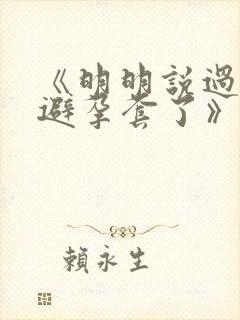 《明明說過
避孕套了》
賴永生